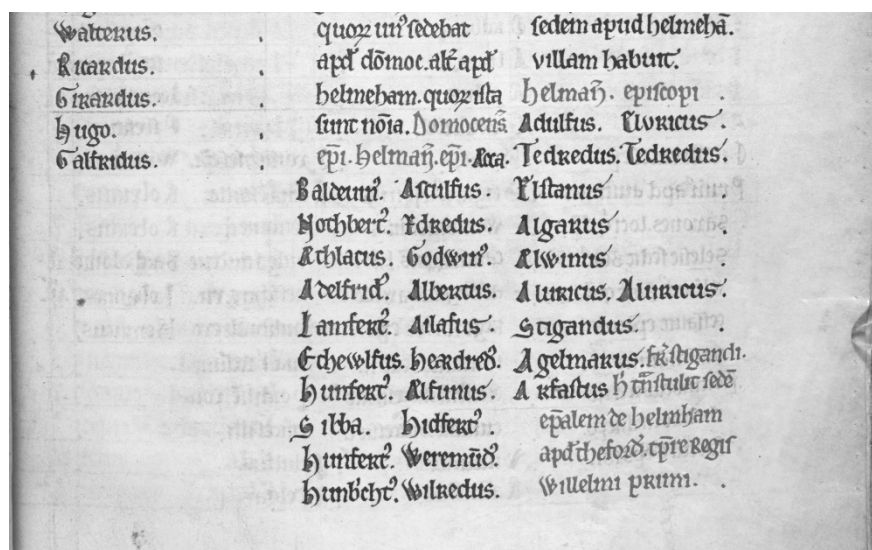 Walterus.
Ricardus.
Girardus.
Hugo.
Galfridus.
quoꝝ un᾽ sedebat
apđ dōmoc. alt̃ apđ
helmeham. quoꝝ ista
sunt nōia. Domocens̃
ep̄i. Helmañ. ep̄i. Acca.
Baldeuin᾽. Asculfus.
Nothbert᾽. Edredus.
Athlacus. Godwin᾽.
Adelfrid᾽. Albertus.
Lamfert᾽. Ailafus.
Echewlfus. Heardred᾽.
Hunfert᾽. Alfunus.
Sibba. Hidfert᾽.
Hunfert᾽. Weremūd᾽.
Hunb̄cht᾽. Wilredus.
sedem apud helmehā.
villam habunt.
helmañ. episcopi
Adulfus. Eloricus.
Tedredus. Tedredus.
Elstanus
Algarus
Alwinus
Aluricus. Aluricus.
Stigandus.
Agelmarus. fr̄ stigandi.
Arfastus. h̄ t̄nstulit sedē
ep̄alem de helmham
apđ theford᾽. tp̄re Regis
Willelmi primi.